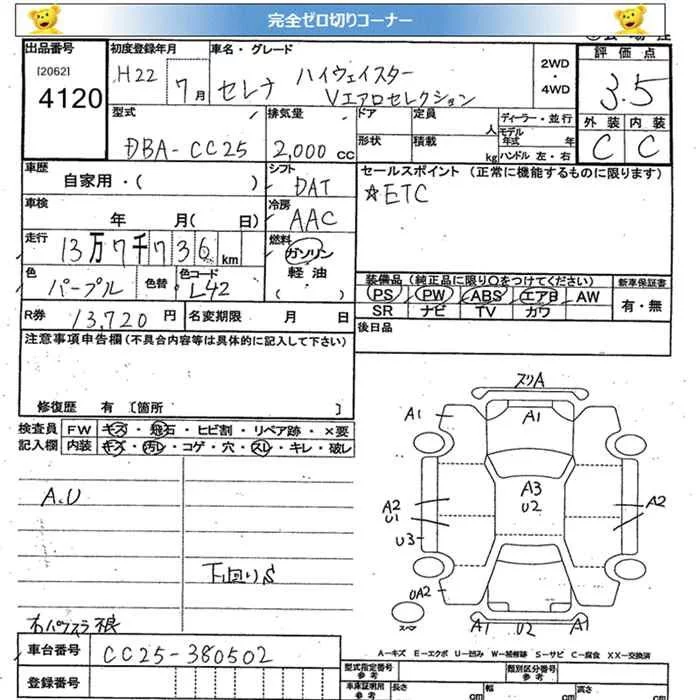 完全ゼロ切りコーナー
出品番号 初度登録年月 車名・グレード 2WD・4WD 評価点
[2062] 4120 H22 7月 セレナ ハイウェイスター Vエアロセレクション 3.5
型式 排気量 ドア 定員 人 ディーラー・並行 外装 内装
DBA-CC25 2,000cc 形状 積載 kg モデル年式 年 ハンドル 左・右 C C
車歴 シフト セールスポイント (正常に機能するものに限ります)
自家用・( ) DAT ☆ETC
車検 冷房
年 月( 日) AAC
走行 燃料
13万7千736km ガソリン
軽油
( )
色 色替 色コード 装備品 (純正品に限り○をつけてください) 新車保証書
パープル L42 PS PW ABS エアB AW 有・無
R券 13,720円 名変期限 月 日 SR ナビ TV カワ
注意事項申告欄 (不具合内容等は具体的に記入して下さい) 後日品
修復歴 有 〔箇所 〕
検査員 FW キズ・飛石・ヒビ割・リペア跡・×要
記入欄 内装 キズ・汚レ・コゲ・穴・スレ・キレ・破レ
スリA
A1 A1
A.U
A3
U2
A2 A2
U1
U3
下回りS
UA2
スペア
A1 U2 A1
A-キズ E-エクボ U-凹み W-補修跡 S-サビ C-腐食 XX-交換済
車台番号 CC25-380502 型式指定番号 参考 類別区分番号 参考
登録番号 車庫証明用 参考 長さ cm 幅 cm 高さ cm